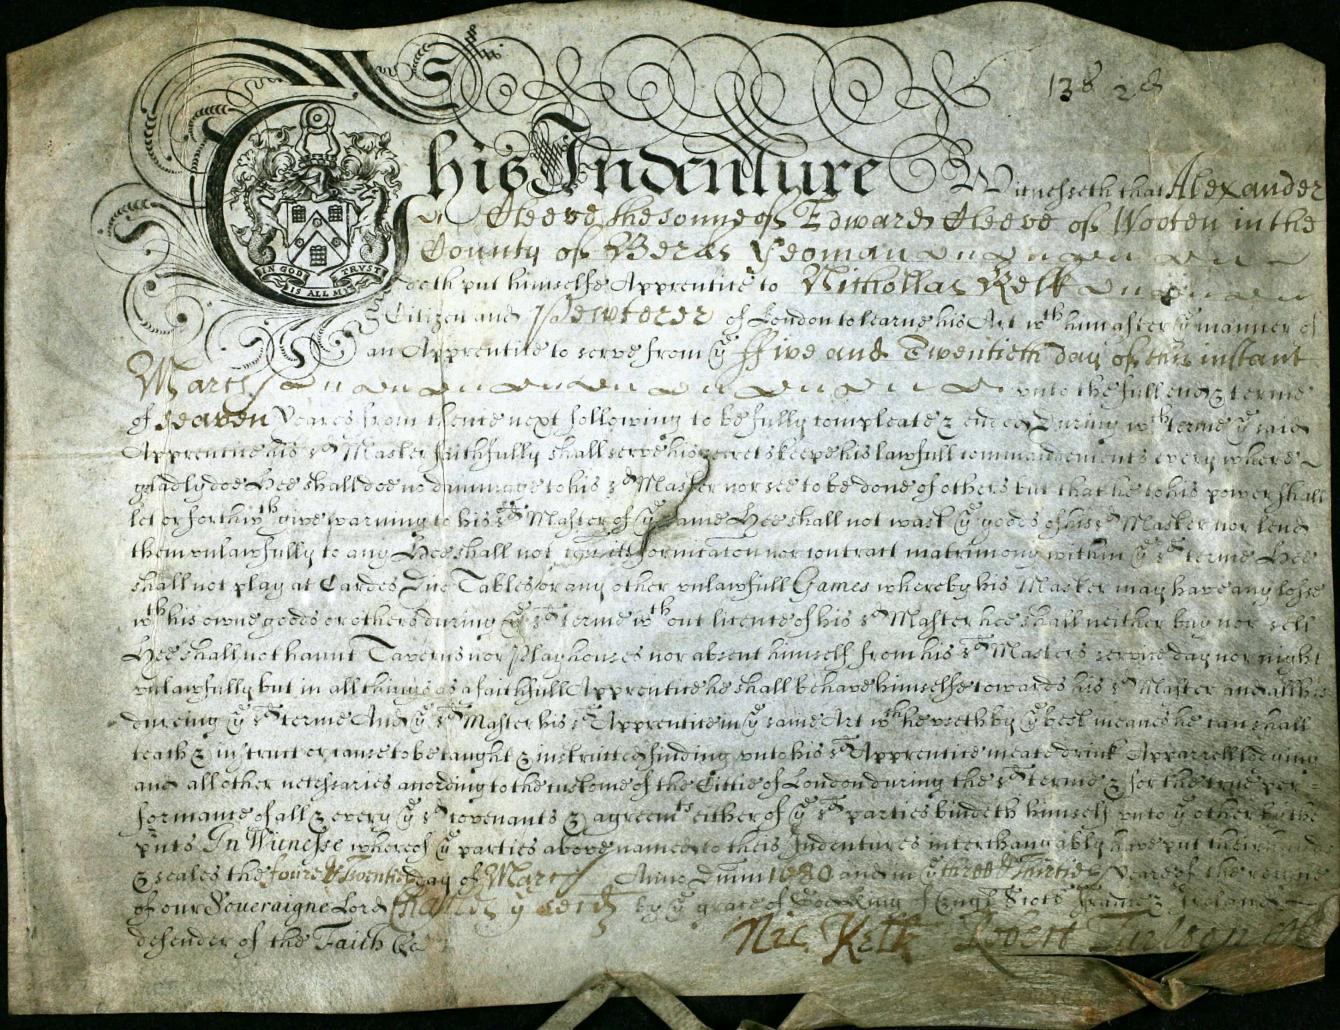 13828
This Indenture Witnesseth that Alexander
Cleeve the sonne of Edward Cleeve of Wooten in the
County of Berks Yeoman
IN GOD IS ALL MY TRVST
doth put himselfe Apprentice to Nichollas Kelk
Citizen and Pewterer of London to learne his Art wth him after ye manner of
an Apprentice to serve from ye ffive and Twentieth day of this instant
March unto the full end & terme
of Seaven Yeares from thence next following to be fully compleate & ended During wch terme ye said
Apprentice his sd Master faithfully shall serve his secrets keepe his lawfull commandements every where
gladly doe Hee shall doe no dammage to his sd Master nor see to be done of others but that he to his power shall
let or forthwth give warning to his sd Master of ye same Hee shall not wast ye goods of his sd Master nor lend
them unlawfully to any Hee shall not comitt fornication nor contract matrimony within ye sd terme Hee
shall not play at Cardes Dice Tables or any other unlawfull Games whereby his Master may have any losse
wth his owne goods or others during ye sd terme wthout licence of his sd Master hee shall neither buy nor sell
Hee shall not haunt Taverns nor Playhouses nor absent himself from his sd Masters service day nor night
unlawfully but in all things as a faithfull Apprentice he shall behave himselfe towards his sd Master and all his
dureing ye sd terme And ye sd Master his sd Apprentice in ye same Art wch he useth by ye best meanes he can shall
teach & instruct or cause to be taught & instructed finding unto his sd Apprentice meate drink Apparrell lodging
and all other necessaries according to the custome of the Cittie of London during the sd terme & for the true per-
formance of all & every ye sd covenants & agreemts either of ye sd parties bindeth himself unto ye other by these
prnts In Witnesse whereof ye parties above named to theis Indentures interchangably have put their hands
& seales the foure & Twentie day of March Anno Dmni 1680 and in ye three & Thirtie Yeare of the reigne
of our Soveraigne Lord Charles ye second by ye grace of God King of Engl Scotl France & Ireland
defender of the Faith &c Nic Kelk Robert